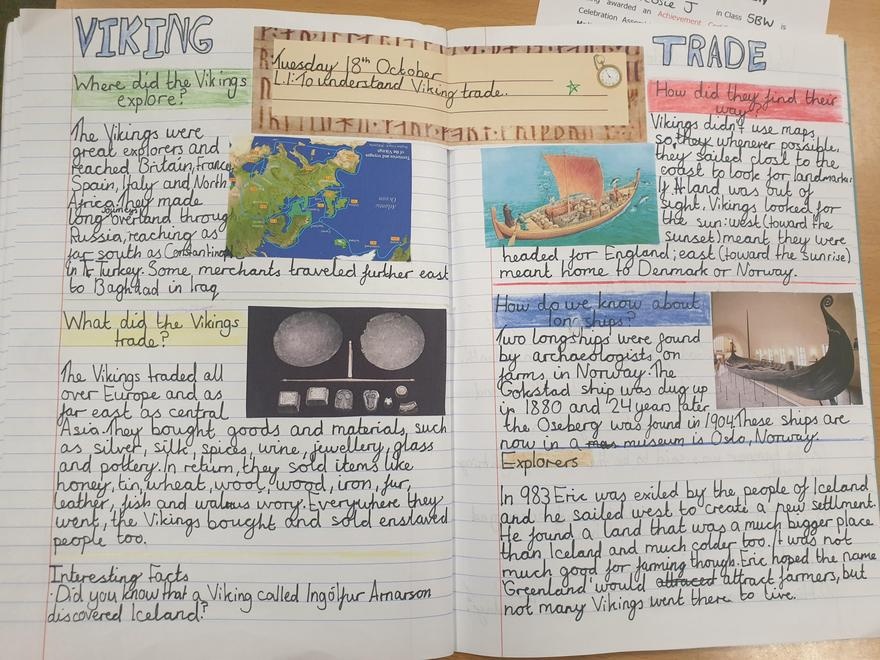 VIKING
TRADE
Tuesday 18th October
L.I: To understand Viking trade.
Where did the Vikings
explore?
The Vikings were
great explorers and
reached Britain, France,
Spain, Italy and North
Africa. They made
long journeys overland through
Russia, reaching as
far south as Constantinople
in Turkey. Some merchants traveled further east
to Baghdad in Iraq
What did the Vikings
trade?
The Vikings traded all
over Europe and as
far east as central
Asia. They bought goods and materials, such
as silver, silk, spices, wine, jewellery, glass
and pottery. In return, they sold items like
honey, tin, wheat, wool, wood, iron, fur,
leather, fish and walrus ivory. Everywhere they
went, the Vikings bought and sold enslaved
people too.
Interesting Facts
· Did you know that a Viking called Ingólfur Arnarson
discovered Iceland?
How did they find their
way?
Vikings didn't use maps
so, they whenever possible,
they sailed close to the
coast to look for landmarks
If land was out of
sight. Vikings looked for
the sun: west (toward the
sunset) meant they were
headed for England; east (toward the sunrise)
meant home to Denmark or Norway.
How do we know about
longships?
Two longships were found
by archaeologists on
farms in Norway. The
Gokstad ship was dug up
in 1880 and 24 years later
the Oseberg was found in 1904. These ships are
now in a mus museum is Oslo, Norway.
Explorers
In 983 Eric was exiled by the people of Iceland
and he sailed west to create a new settlment.
He found a land that was a much bigger place
than Iceland and much colder too. It was not
much good for farming though. Eric hoped the name
'Greenland' would attraced attract farmers, but
not many Vikings went there to live.
Atlantic
Ocean
awarded an Achievement
in Class 5BW is
Celebration